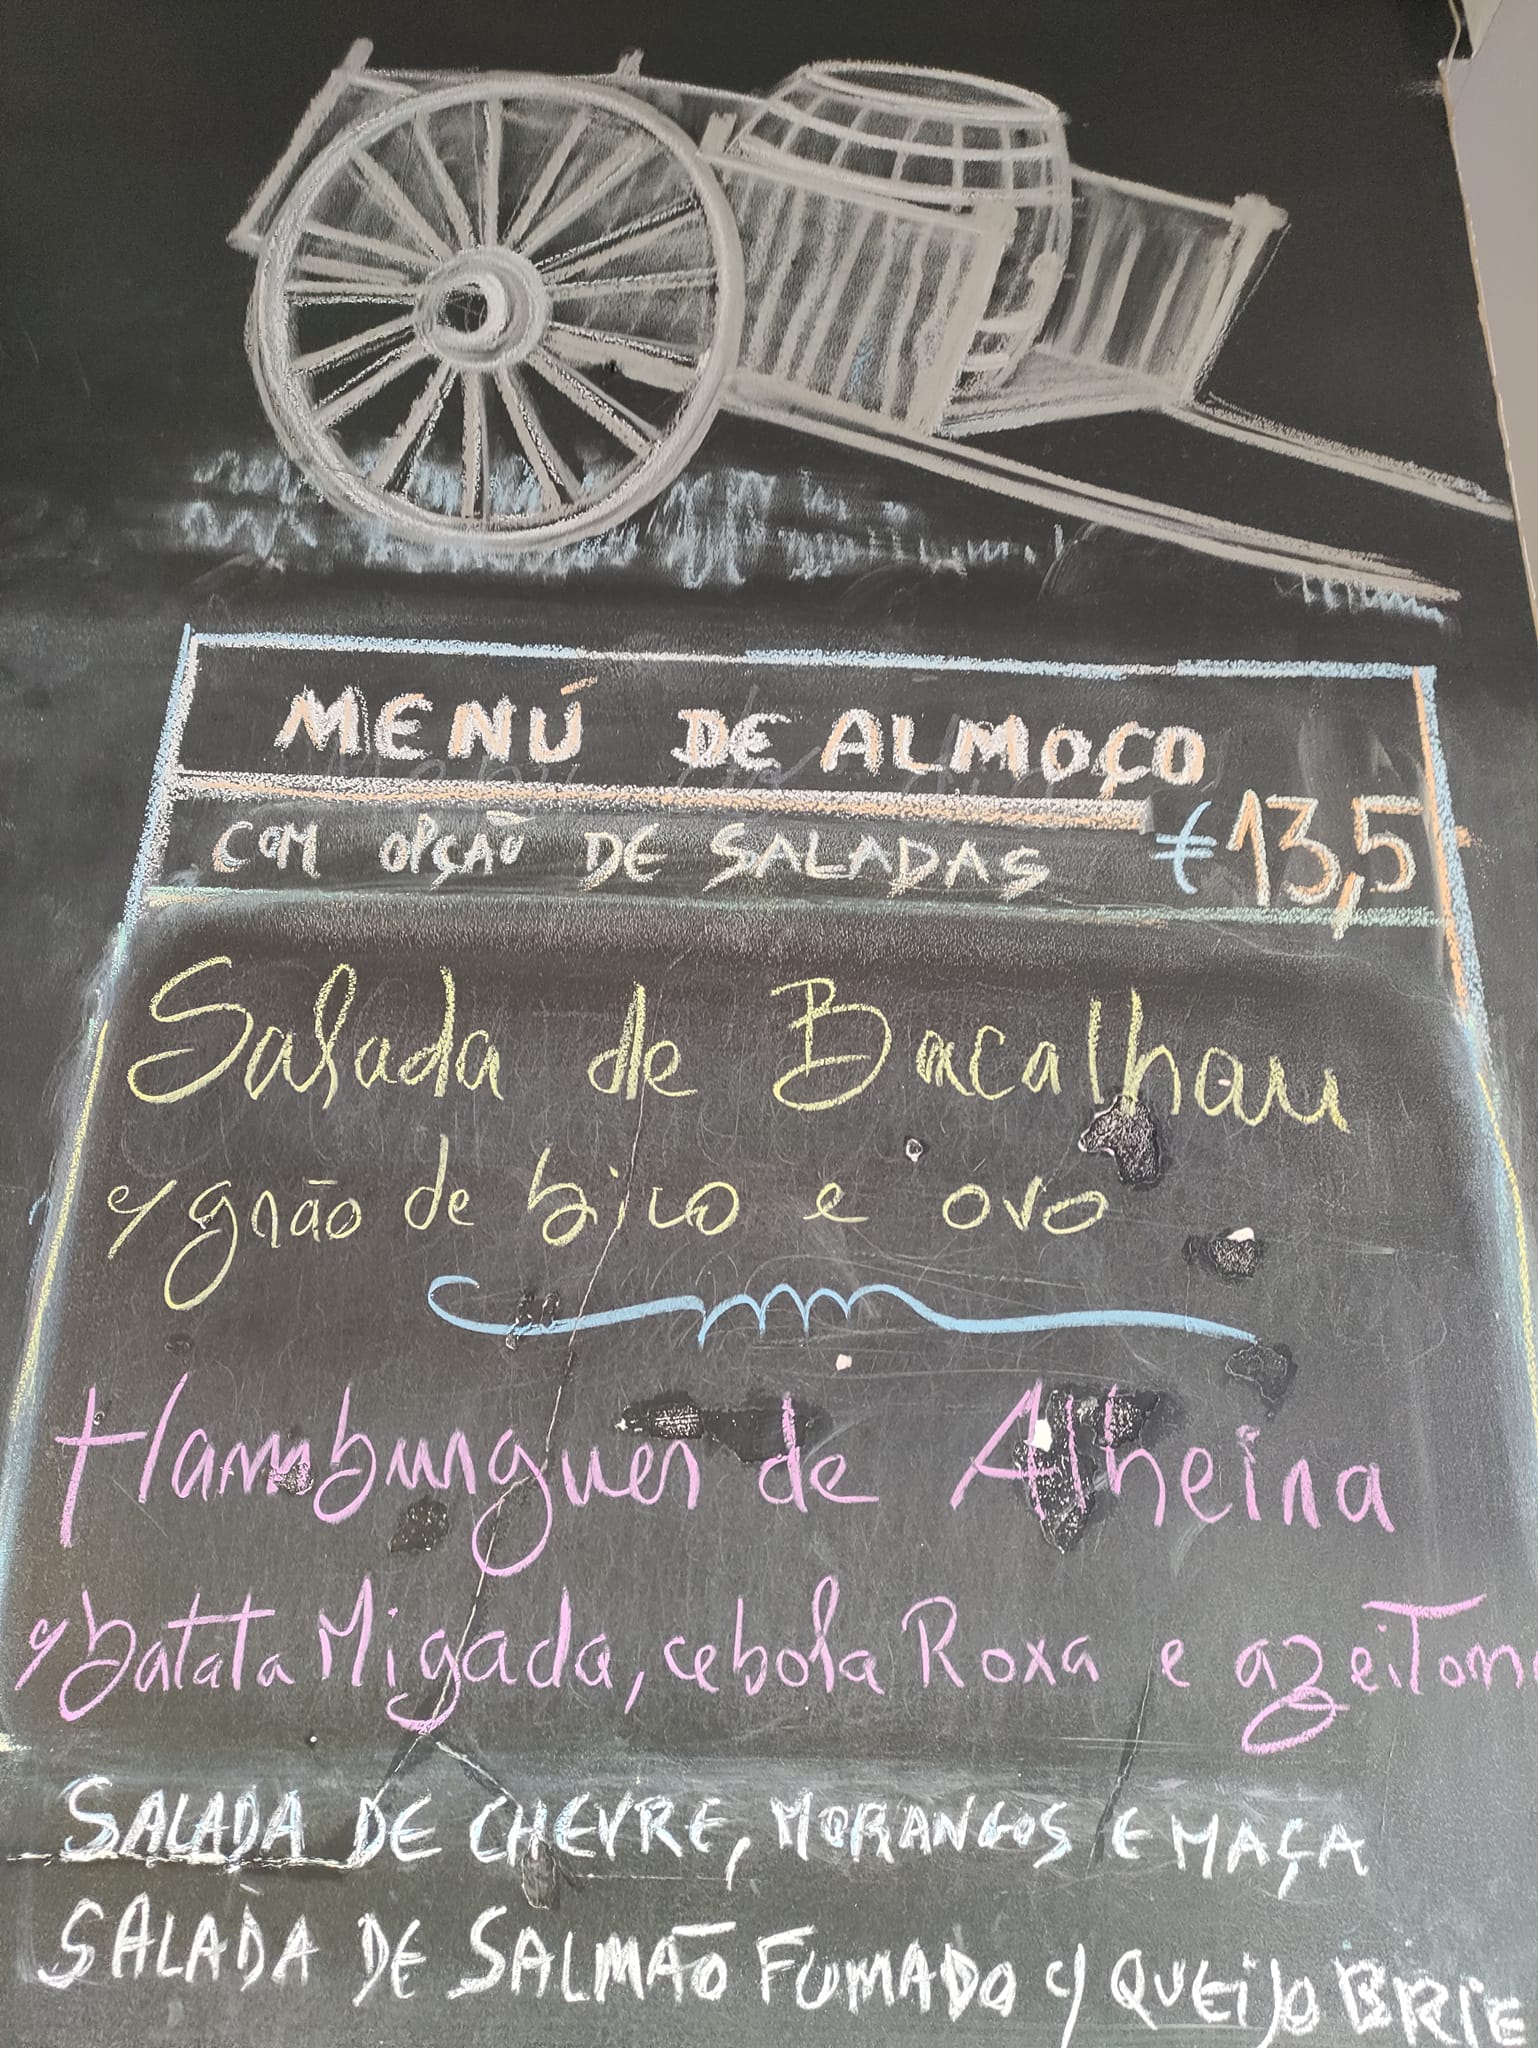 MENÚ DE ALMOÇO
COM OPÇÃO DE SALADAS €13,5
Salada de Bacalhau
c/ grão de bico e ovo
Hamburguer de Alheira
c/ batata Migada, cebola Roxa e azeitona
SALADA DE CHEVRE, MORANGOS E MAÇA
SALADA DE SALMÃO FUMADO c/ QUEIJO BRIE